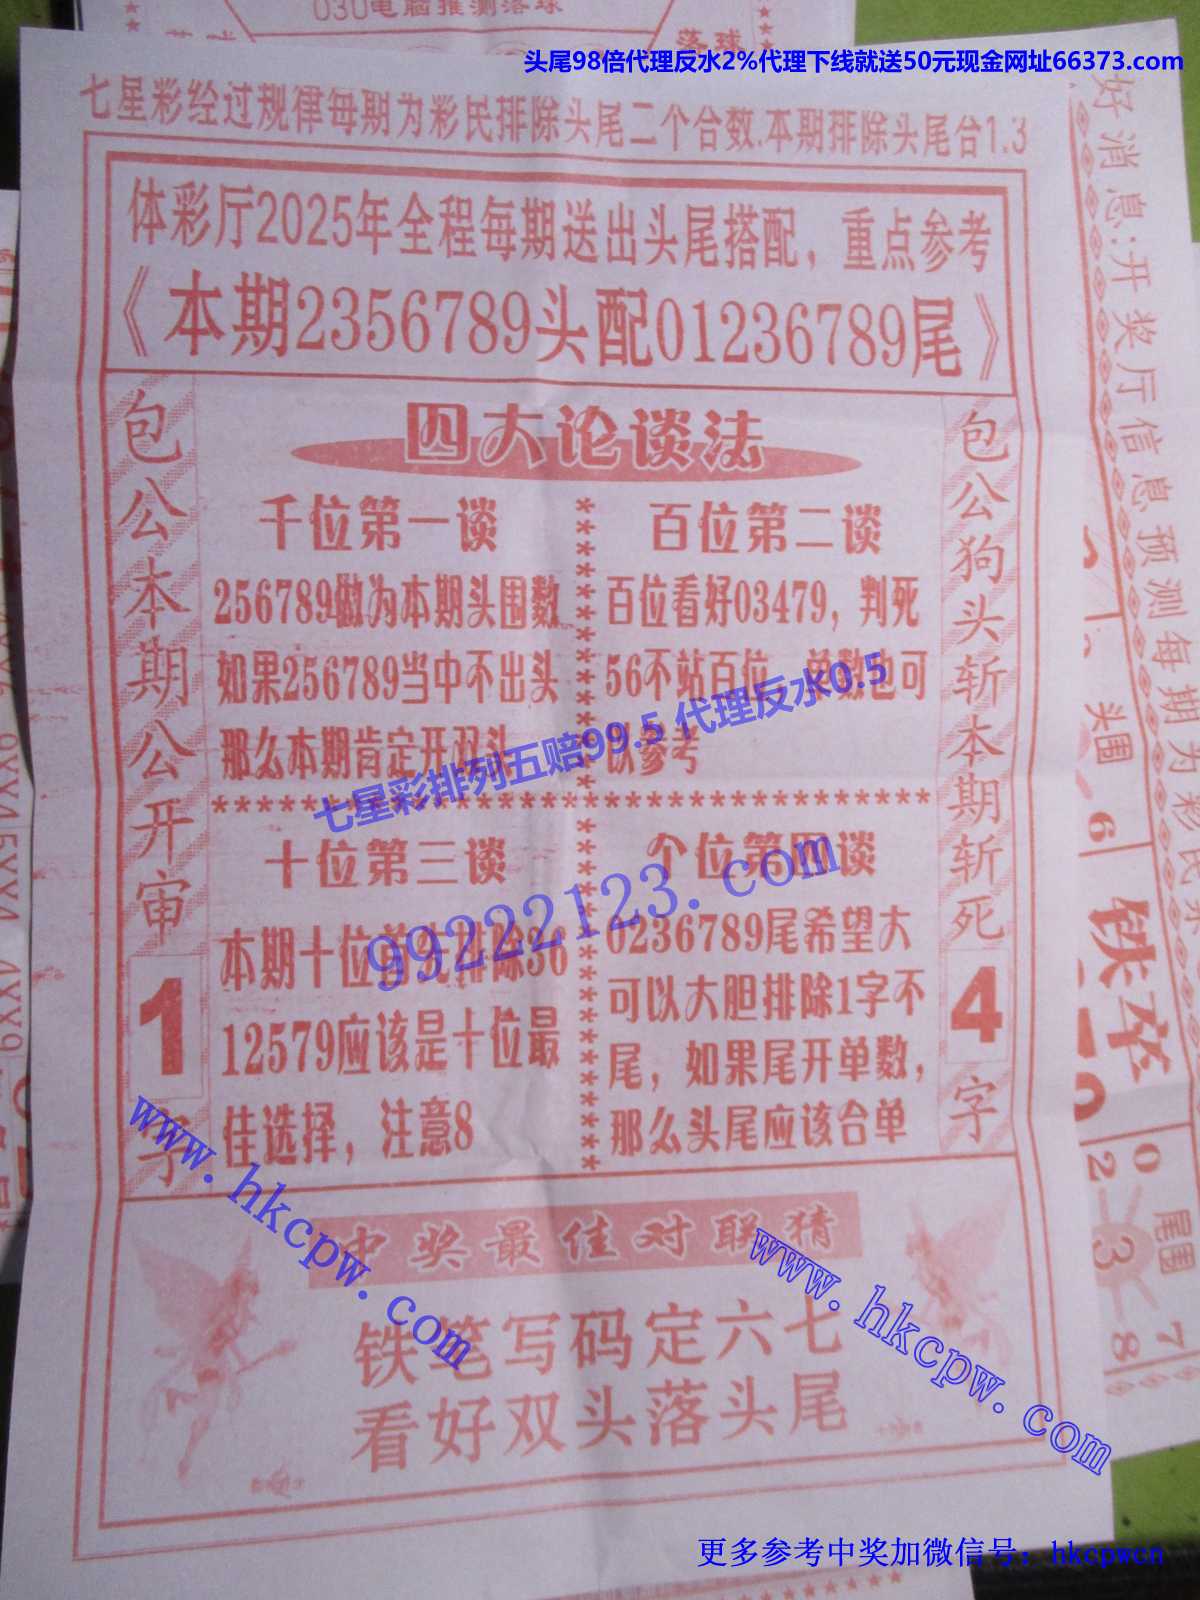 030电脑推测落球
落球
头尾98倍代理反水2%代理下线就送50元现金网址66373.com
七星彩经过规律每期为彩民排除头尾二个合数.本期排除头尾合1.3
体彩厅2025年全程每期送出头尾搭配，重点参考
《本期2356789头配01236789尾》
包公本期公开审
1
字
四大论谈法
千位第一谈
256789做为本期头围数
如果256789当中不出头
那么本期肯定开双头
百位第二谈
百位看好03479，判死
56不站百位，单数也可
以参考
七星彩排列五赔99.5 代理反水0.5
********************************
十位第三谈
本期十位首先排除36
12579应该是十位最
佳选择，注意8
个位第四谈
0236789尾希望大
可以大胆排除1字不
尾，如果尾开单数，
那么头尾应该合单
99222123.com
包公狗头斩本期斩死
4
字
中奖最佳对联猜
铁笔写码定六七
看好双头落头尾
www.hkcpw.com
www.hkcpw.com
更多参考中奖加微信号：hkcpwcn
好消息:开奖厅信息预测每期为彩民
头围
6
铁卒
0
2
尾围
3
7
8